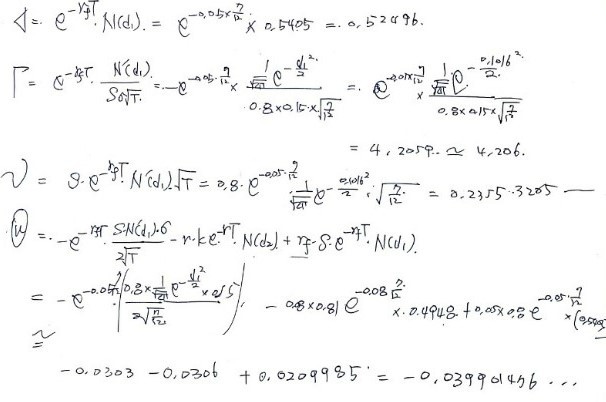 Δ = e^{-r_f T} N(d₁) = e^{-0.05×7/12} × 0.5405 = 0.52496.
Γ = e^{-r_f T} · N'(d₁) / Sσ√T = e^{-0.05·7/12} × (1/√2π) e^{-d₁²/2} / (0.8×0.15×√(7/12)) = e^{-0.05×7/12} × (1/√2π) e^{-0.1016²/2} / (0.8×0.15×√(7/12))
= 4.2059.. ≃ 4.206.
ν = S·e^{-r_f T} N'(d₁)√T = 0.8·e^{-0.05·7/12} · (1/√2π) e^{-0.1016²/2} · √(7/12) = 0.2355·3205 —
Θ = -e^{-r_f T} · S·N'(d₁)·σ / 2√T - r·k·e^{-rT} · N(d₂) + r_f·S·e^{-r_f T} · N(d₁).
= -e^{-0.05·7/12} (0.8 × (1/√2π) e^{-d₁²/2} × 0.15 / 2√(7/12)) - 0.08×0.81 e^{-0.08·7/12} × 0.4948 + 0.05×0.8 e^{-0.05·7/12} × (0.5405)
≃
-0.0303 - 0.0306 + 0.0209985 = -0.039901456 ...